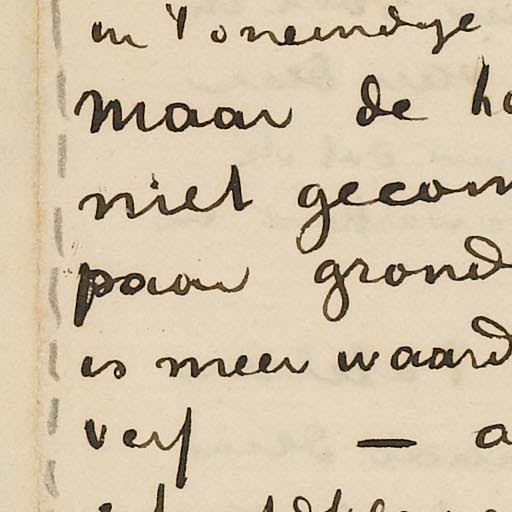 in 't oneindige
maar de ha
niet gecom
paar grond
is meer waard
verf — a